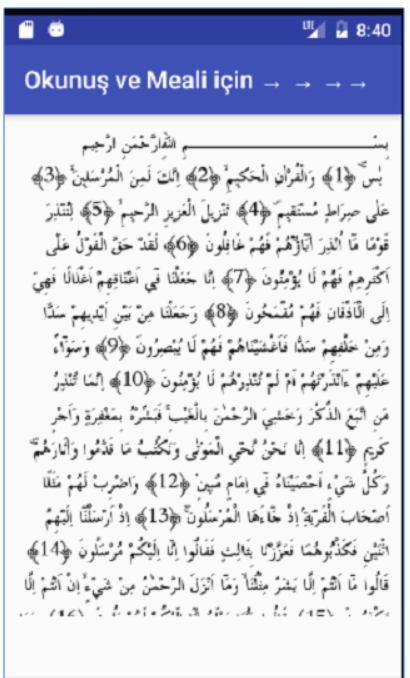 LTE 8:40
Okunuş ve Meali için → → → →
بِسْــــــــــــــــمِ اللهِ الرَّحْمٰنِ الرَّحِيمِ
يٰسٓ ﴿1﴾ وَالْقُرْاٰنِ الْحَكِيمِ ﴿2﴾ اِنَّكَ لَمِنَ الْمُرْسَلِينَ ﴿3﴾
عَلٰى صِرَاطٍ مُسْتَقِيمٍ ﴿4﴾ تَنْزِيلَ الْعَزِيزِ الرَّحِيمِ ﴿5﴾ لِتُنْذِرَ
قَوْمًا مَٓا اُنْذِرَ اٰبَٓاؤُ۬هُمْ فَهُمْ غَافِلُونَ ﴿6﴾ لَقَدْ حَقَّ الْقَوْلُ عَلٰٓى
اَكْثَرِهِمْ فَهُمْ لَا يُؤْمِنُونَ ﴿7﴾ اِنَّا جَعَلْنَا فِٓي اَعْنَاقِهِمْ اَغْلَالًا فَهِيَ
اِلَى الْاَذْقَانِ فَهُمْ مُقْمَحُونَ ﴿8﴾ وَجَعَلْنَا مِنْ بَيْنِ اَيْدِيهِمْ سَدًّا
وَمِنْ خَلْفِهِمْ سَدًّا فَاَغْشَيْنَاهُمْ فَهُمْ لَا يُبْصِرُونَ ﴿9﴾ وَسَوَٓاءٌ
عَلَيْهِمْ ءَاَنْذَرْتَهُمْ اَمْ لَمْ تُنْذِرْهُمْ لَا يُؤْمِنُونَ ﴿10﴾ اِنَّمَا تُنْذِرُ
مَنِ اتَّبَعَ الذِّكْرَ وَخَشِيَ الرَّحْمٰنَ بِالْغَيْبِ فَبَشِّرْهُ بِمَغْفِرَةٍ وَاَجْرٍ
كَرِيمٍ ﴿11﴾ اِنَّا نَحْنُ نُحْيِ الْمَوْتٰى وَنَكْتُبُ مَا قَدَّمُوا وَاٰثَارَهُمْ
وَكُلَّ شَيْءٍ اَحْصَيْنَاهُ فِٓي اِمَامٍ مُبِينٍ ﴿12﴾ وَاضْرِبْ لَهُمْ مَثَلًا
اَصْحَابَ الْقَرْيَةِ اِذْ جَٓاءَهَا الْمُرْسَلُونَ ﴿13﴾ اِذْ اَرْسَلْنَٓا اِلَيْهِمُ
اثْنَيْنِ فَكَذَّبُوهُمَا فَعَزَّزْنَا بِثَالِثٍ فَقَالُٓوا اِنَّٓا اِلَيْكُمْ مُرْسَلُونَ ﴿14﴾
قَالُوا مَٓا اَنْتُمْ اِلَّا بَشَرٌ مِثْلُنَا وَمَٓا اَنْزَلَ الرَّحْمٰنُ مِنْ شَيْءٍ اِنْ اَنْتُمْ اِلَّا